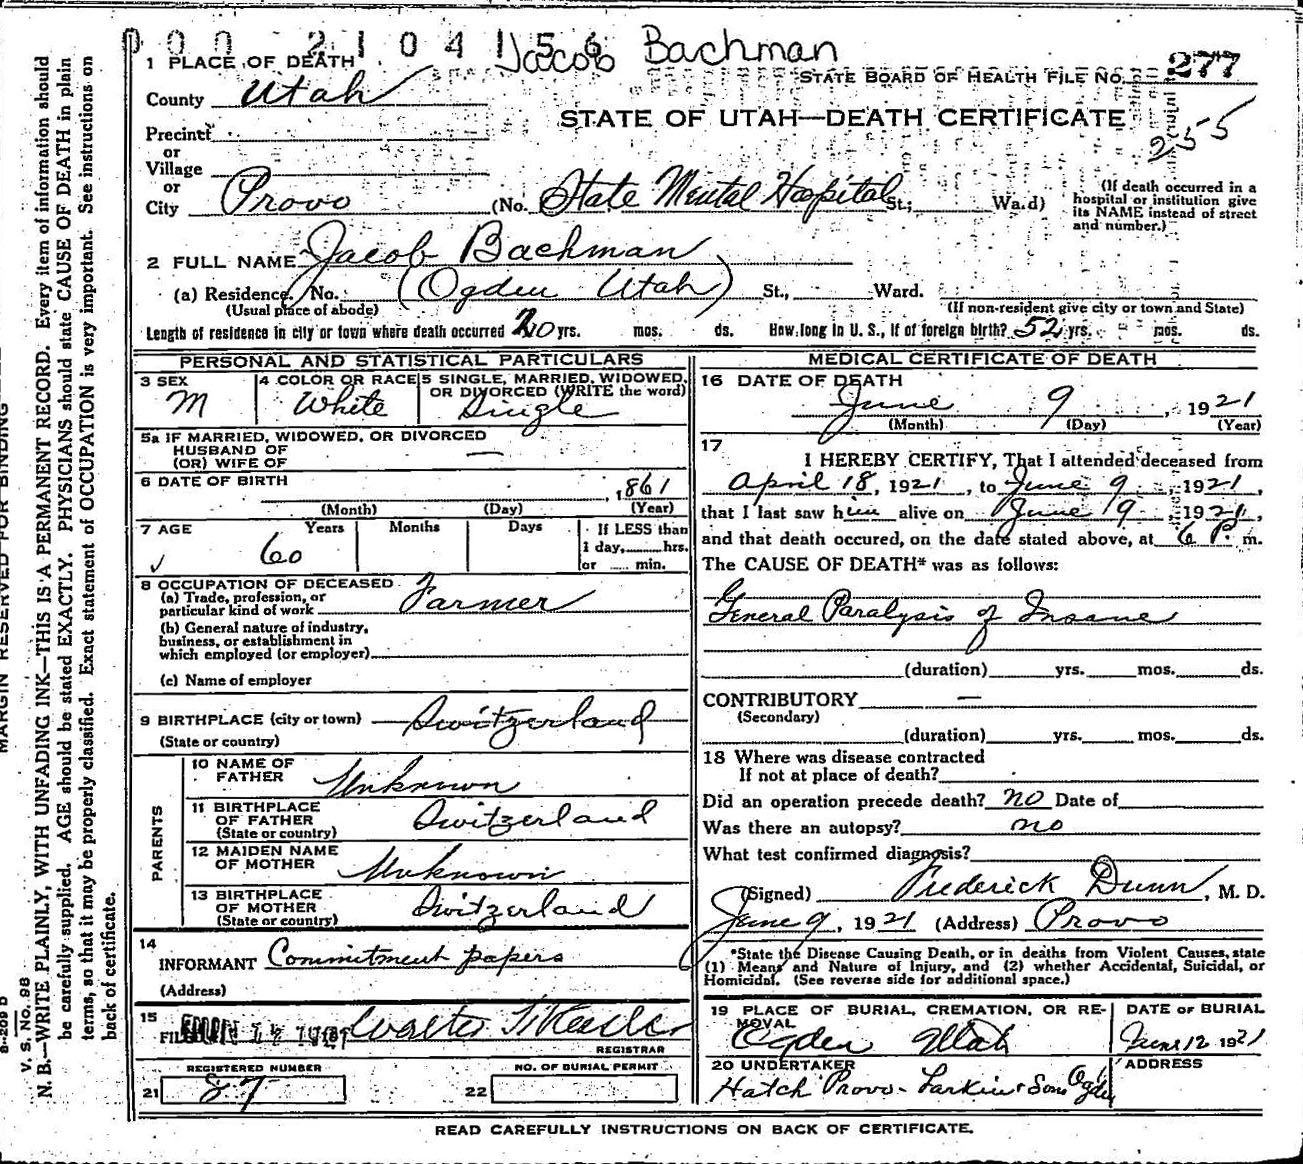 000 2104156 Jacob Bachman
STATE BOARD OF HEALTH FILE NO. 277
255
STATE OF UTAH—DEATH CERTIFICATE
1 PLACE OF DEATH
County Utah
Precinct
or
Village
or
City Provo (No. State Mental Hospital St.; Ward)
(If death occurred in a
hospital or institution give
its NAME instead of street
and number.)
2 FULL NAME Jacob Bachman
(a) Residence. No. (Ogden Utah) St., Ward.
(Usual place of abode) (If non-resident give city or town and State)
Length of residence in city or town where death occurred yrs. mos. ds. How long in U. S., if of foreign birth? 52 yrs. mos. ds.
PERSONAL AND STATISTICAL PARTICULARS
3 SEX 4 COLOR OR RACE 5 SINGLE, MARRIED, WIDOWED,
OR DIVORCED (WRITE the word)
M White Single
5a IF MARRIED, WIDOWED, OR DIVORCED
HUSBAND OF
(OR) WIFE OF —
6 DATE OF BIRTH
, 1861
(Month) (Day) (Year)
7 AGE Years Months Days If LESS than
60 1 day, hrs.
or min.
8 OCCUPATION OF DECEASED
(a) Trade, profession, or
particular kind of work Farmer
(b) General nature of industry,
business, or establishment in
which employed (or employer)
(c) Name of employer
9 BIRTHPLACE (city or town) Switzerland
(State or country)
PARENTS
10 NAME OF
FATHER Unknown
11 BIRTHPLACE
OF FATHER Switzerland
(State or country)
12 MAIDEN NAME
OF MOTHER Unknown
13 BIRTHPLACE
OF MOTHER Switzerland
(State or country)
14
INFORMANT Commitment papers
(Address)
15
REGISTRAR
REGISTERED NUMBER NO. OF BURIAL PERMIT
21 87 22
MEDICAL CERTIFICATE OF DEATH
16 DATE OF DEATH
June 9, 1921
(Month) (Day) (Year)
17
I HEREBY CERTIFY, That I attended deceased from
April 18, 1921, to June 9, 1921,
that I last saw him alive on June 9, 1921,
and that death occured, on the date stated above, at 6 P. m.
The CAUSE OF DEATH* was as follows:
General Paralysis of Insane
(duration) yrs. mos. ds.
CONTRIBUTORY —
(Secondary)
(duration) yrs. mos. ds.
18 Where was disease contracted
If not at place of death?
Did an operation precede death? no Date of
Was there an autopsy? no
What test confirmed diagnosis?
(Signed) Frederick Dunn, M. D.
June 9, 1921 (Address) Provo
*State the Disease Causing Death, or in deaths from Violent Causes, state
(1) Means and Nature of Injury, and (2) whether Accidental, Suicidal, or
Homicidal. (See reverse side for additional space.)
19 PLACE OF BURIAL, CREMATION, OR RE-
MOVAL DATE OF BURIAL
Ogden Utah June 12 1921
20 UNDERTAKER ADDRESS
Hatch Provo - Larkin & Sons Ogden
READ CAREFULLY INSTRUCTIONS ON BACK OF CERTIFICATE.
MARGIN RESERVED FOR BINDING
V. S. No. 98
N. B.—WRITE PLAINLY, WITH UNFADING INK—THIS IS A PERMANENT RECORD. Every item of information should
be carefully supplied. AGE should be stated EXACTLY. PHYSICIANS should state CAUSE OF DEATH in plain
terms, so that it may be properly classified. Exact statement of OCCUPATION is very important. See instructions on
back of certificate.